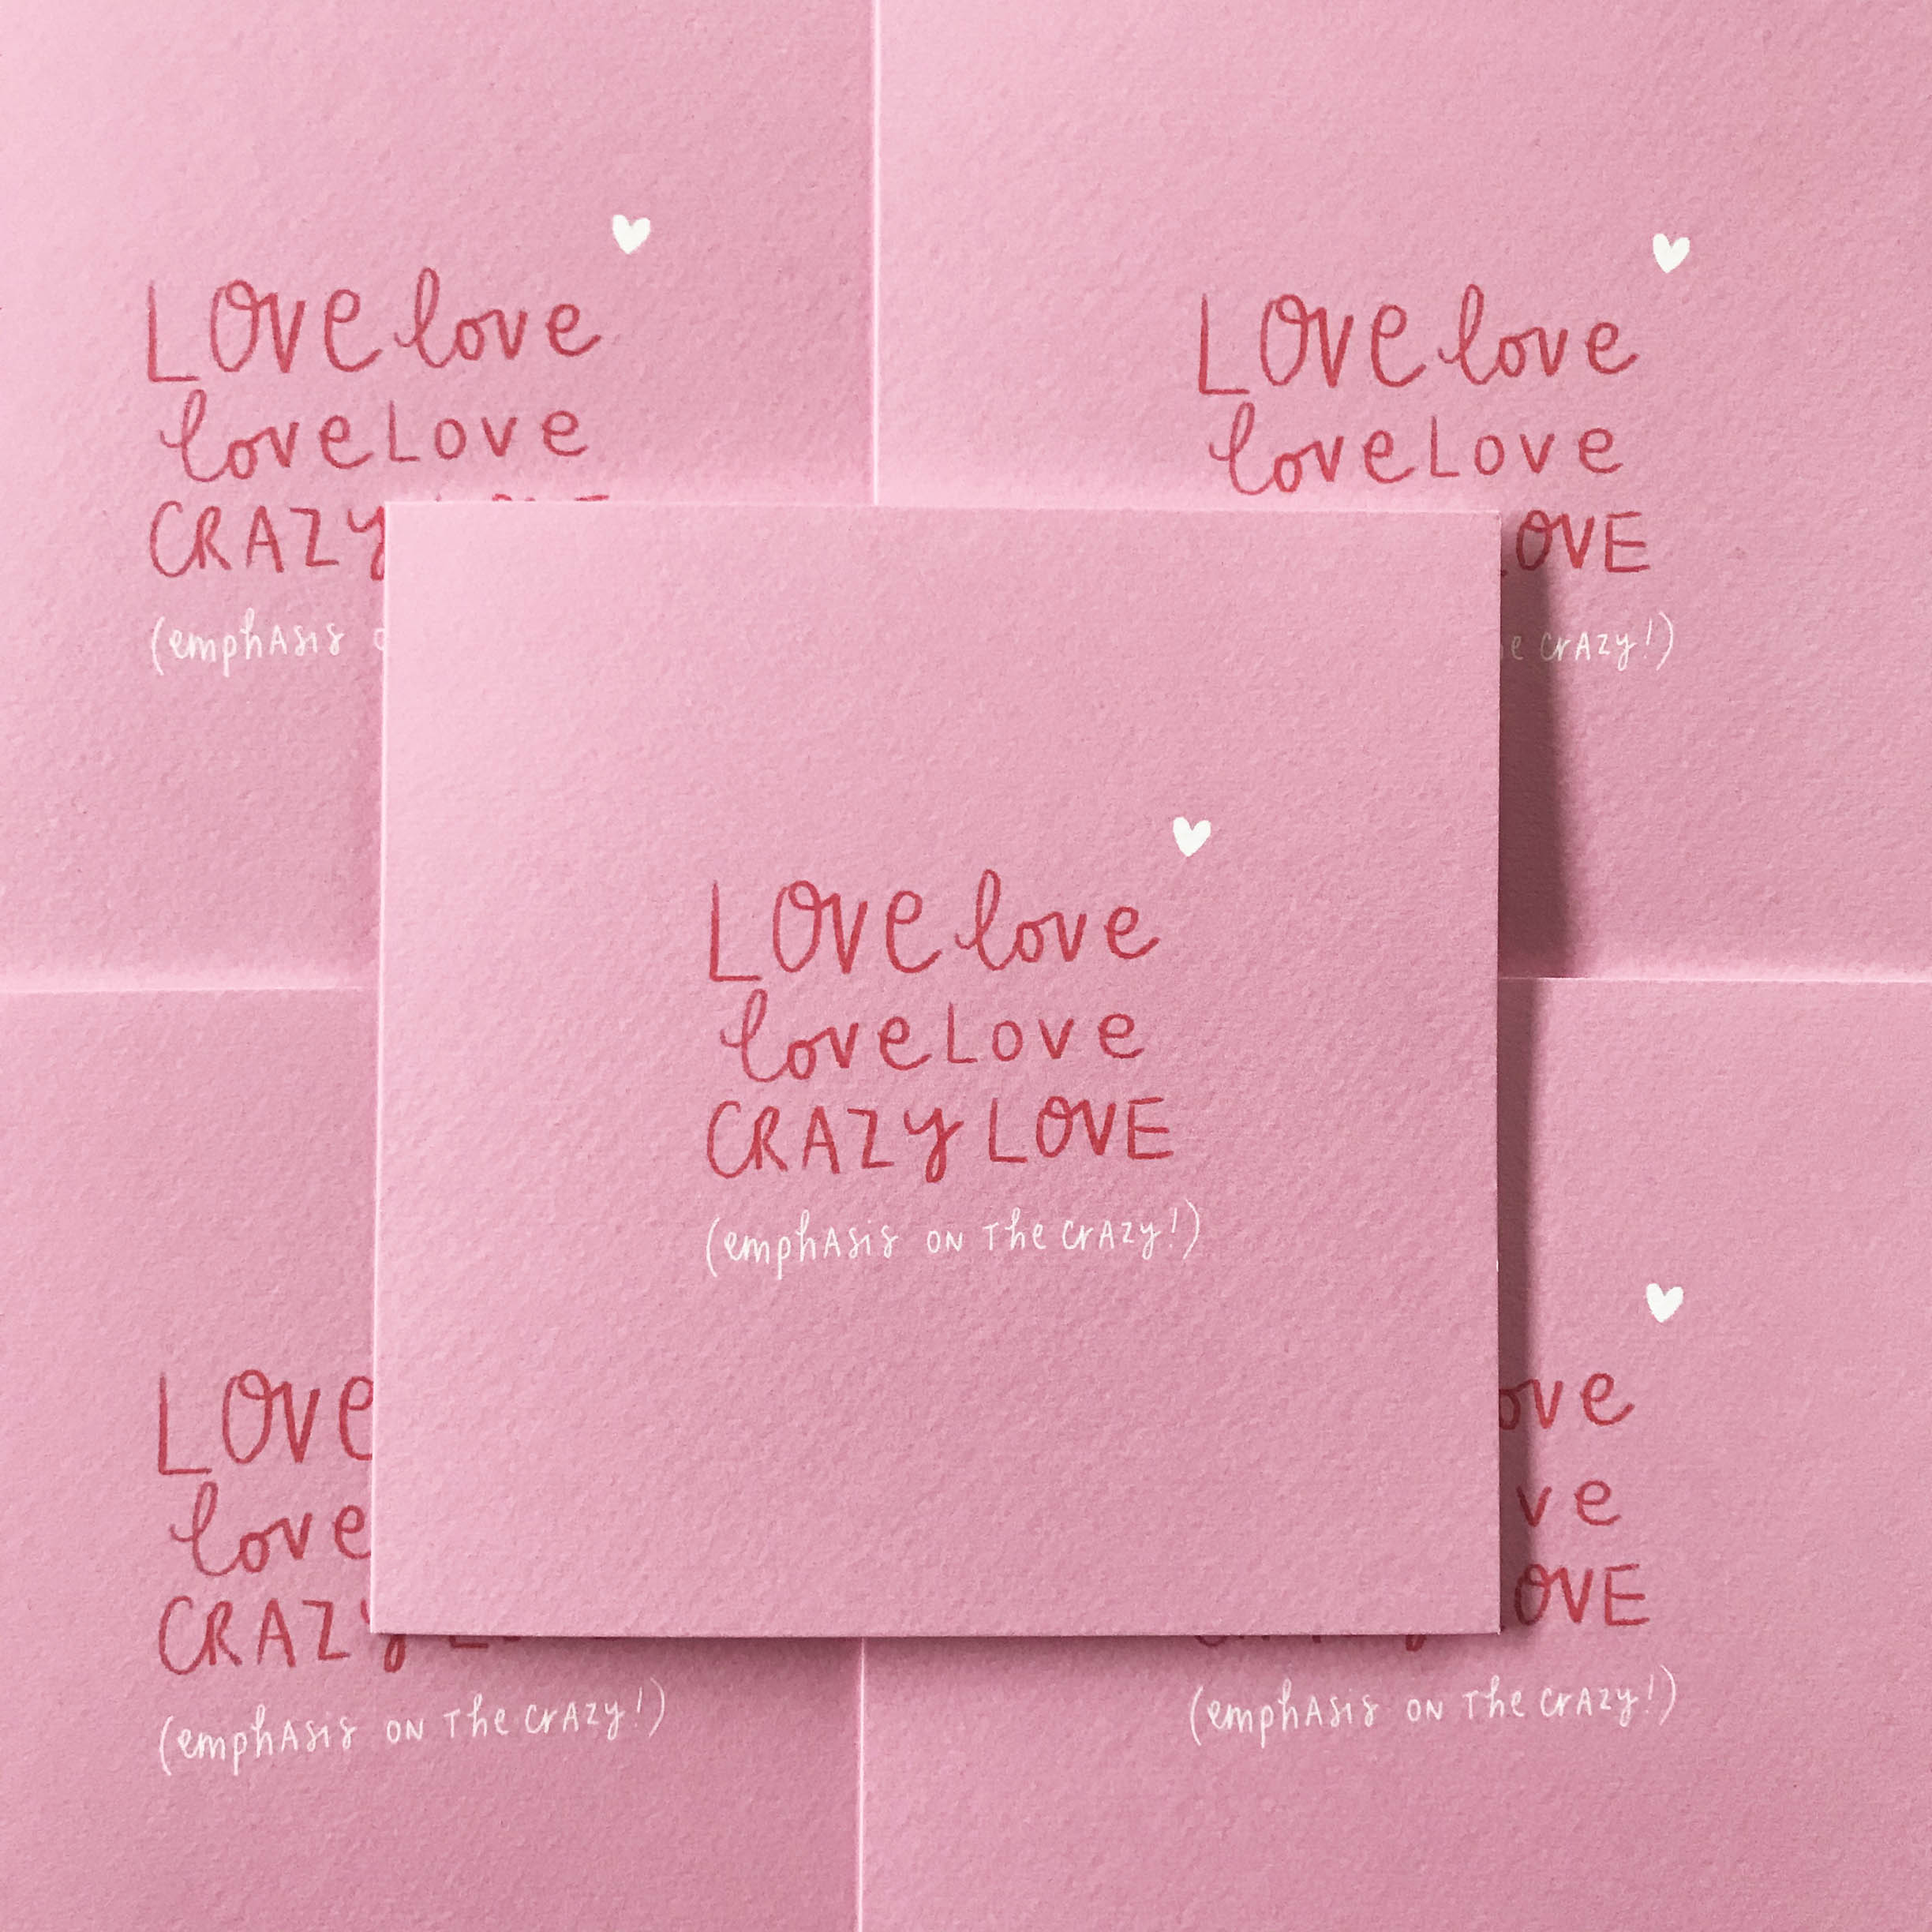 LOVe love
love Love
CRAZy
(emphAsis
LOVe love
love Love
OVE
crAzy!)
LOVe love
love Love
CRAZy LOVE
(emphAsis oN The crAzy!)
LOVe
love
CRAZy
(emphAsis oN The crAzy!)
ve
OVE
(emphAsis oN The crAzy!)